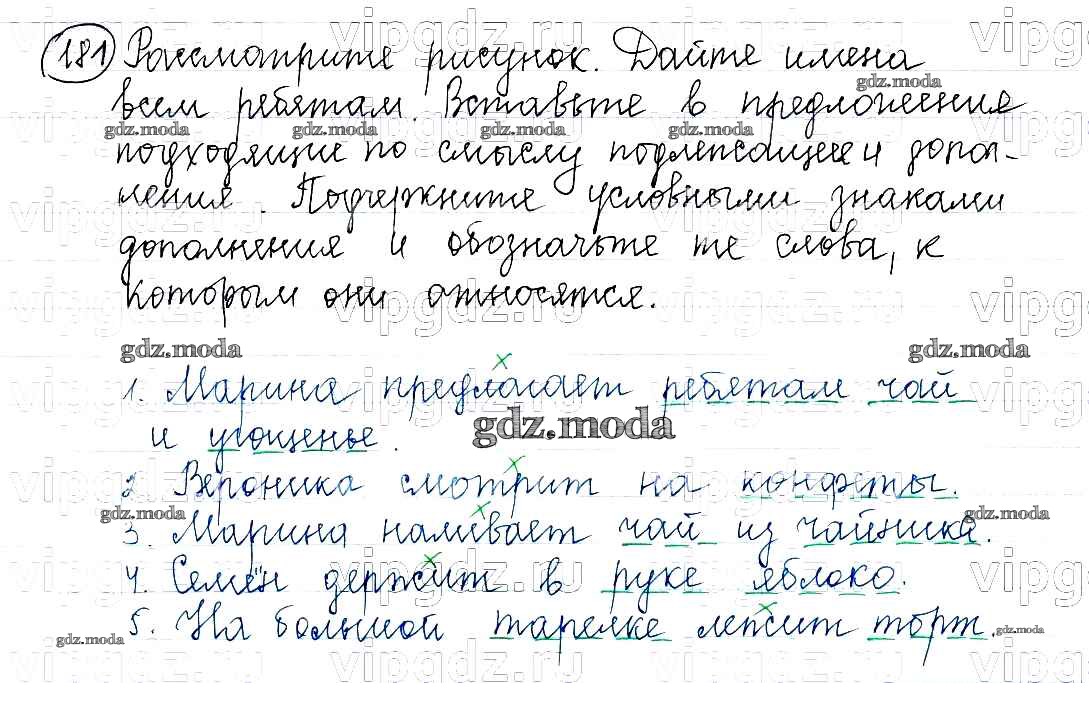 181 Рассмотрите рисунок. Дайте имена
всем ребятам. Вставьте в предложения
подходящие по смыслу подлежащее и допол-
нения. Подчеркните условными знаками
дополнения и обозначьте те слова, к
которым они относятся.
1. Марина предлагает ребятам чай
и угощенье.
2. Вероника смотрит на конфеты.
3. Марина наливает чай из чайника.
4. Семён держит в руке яблоко.
5. На большой тарелке лежит торт.
gdz.moda
vipgdz.ru